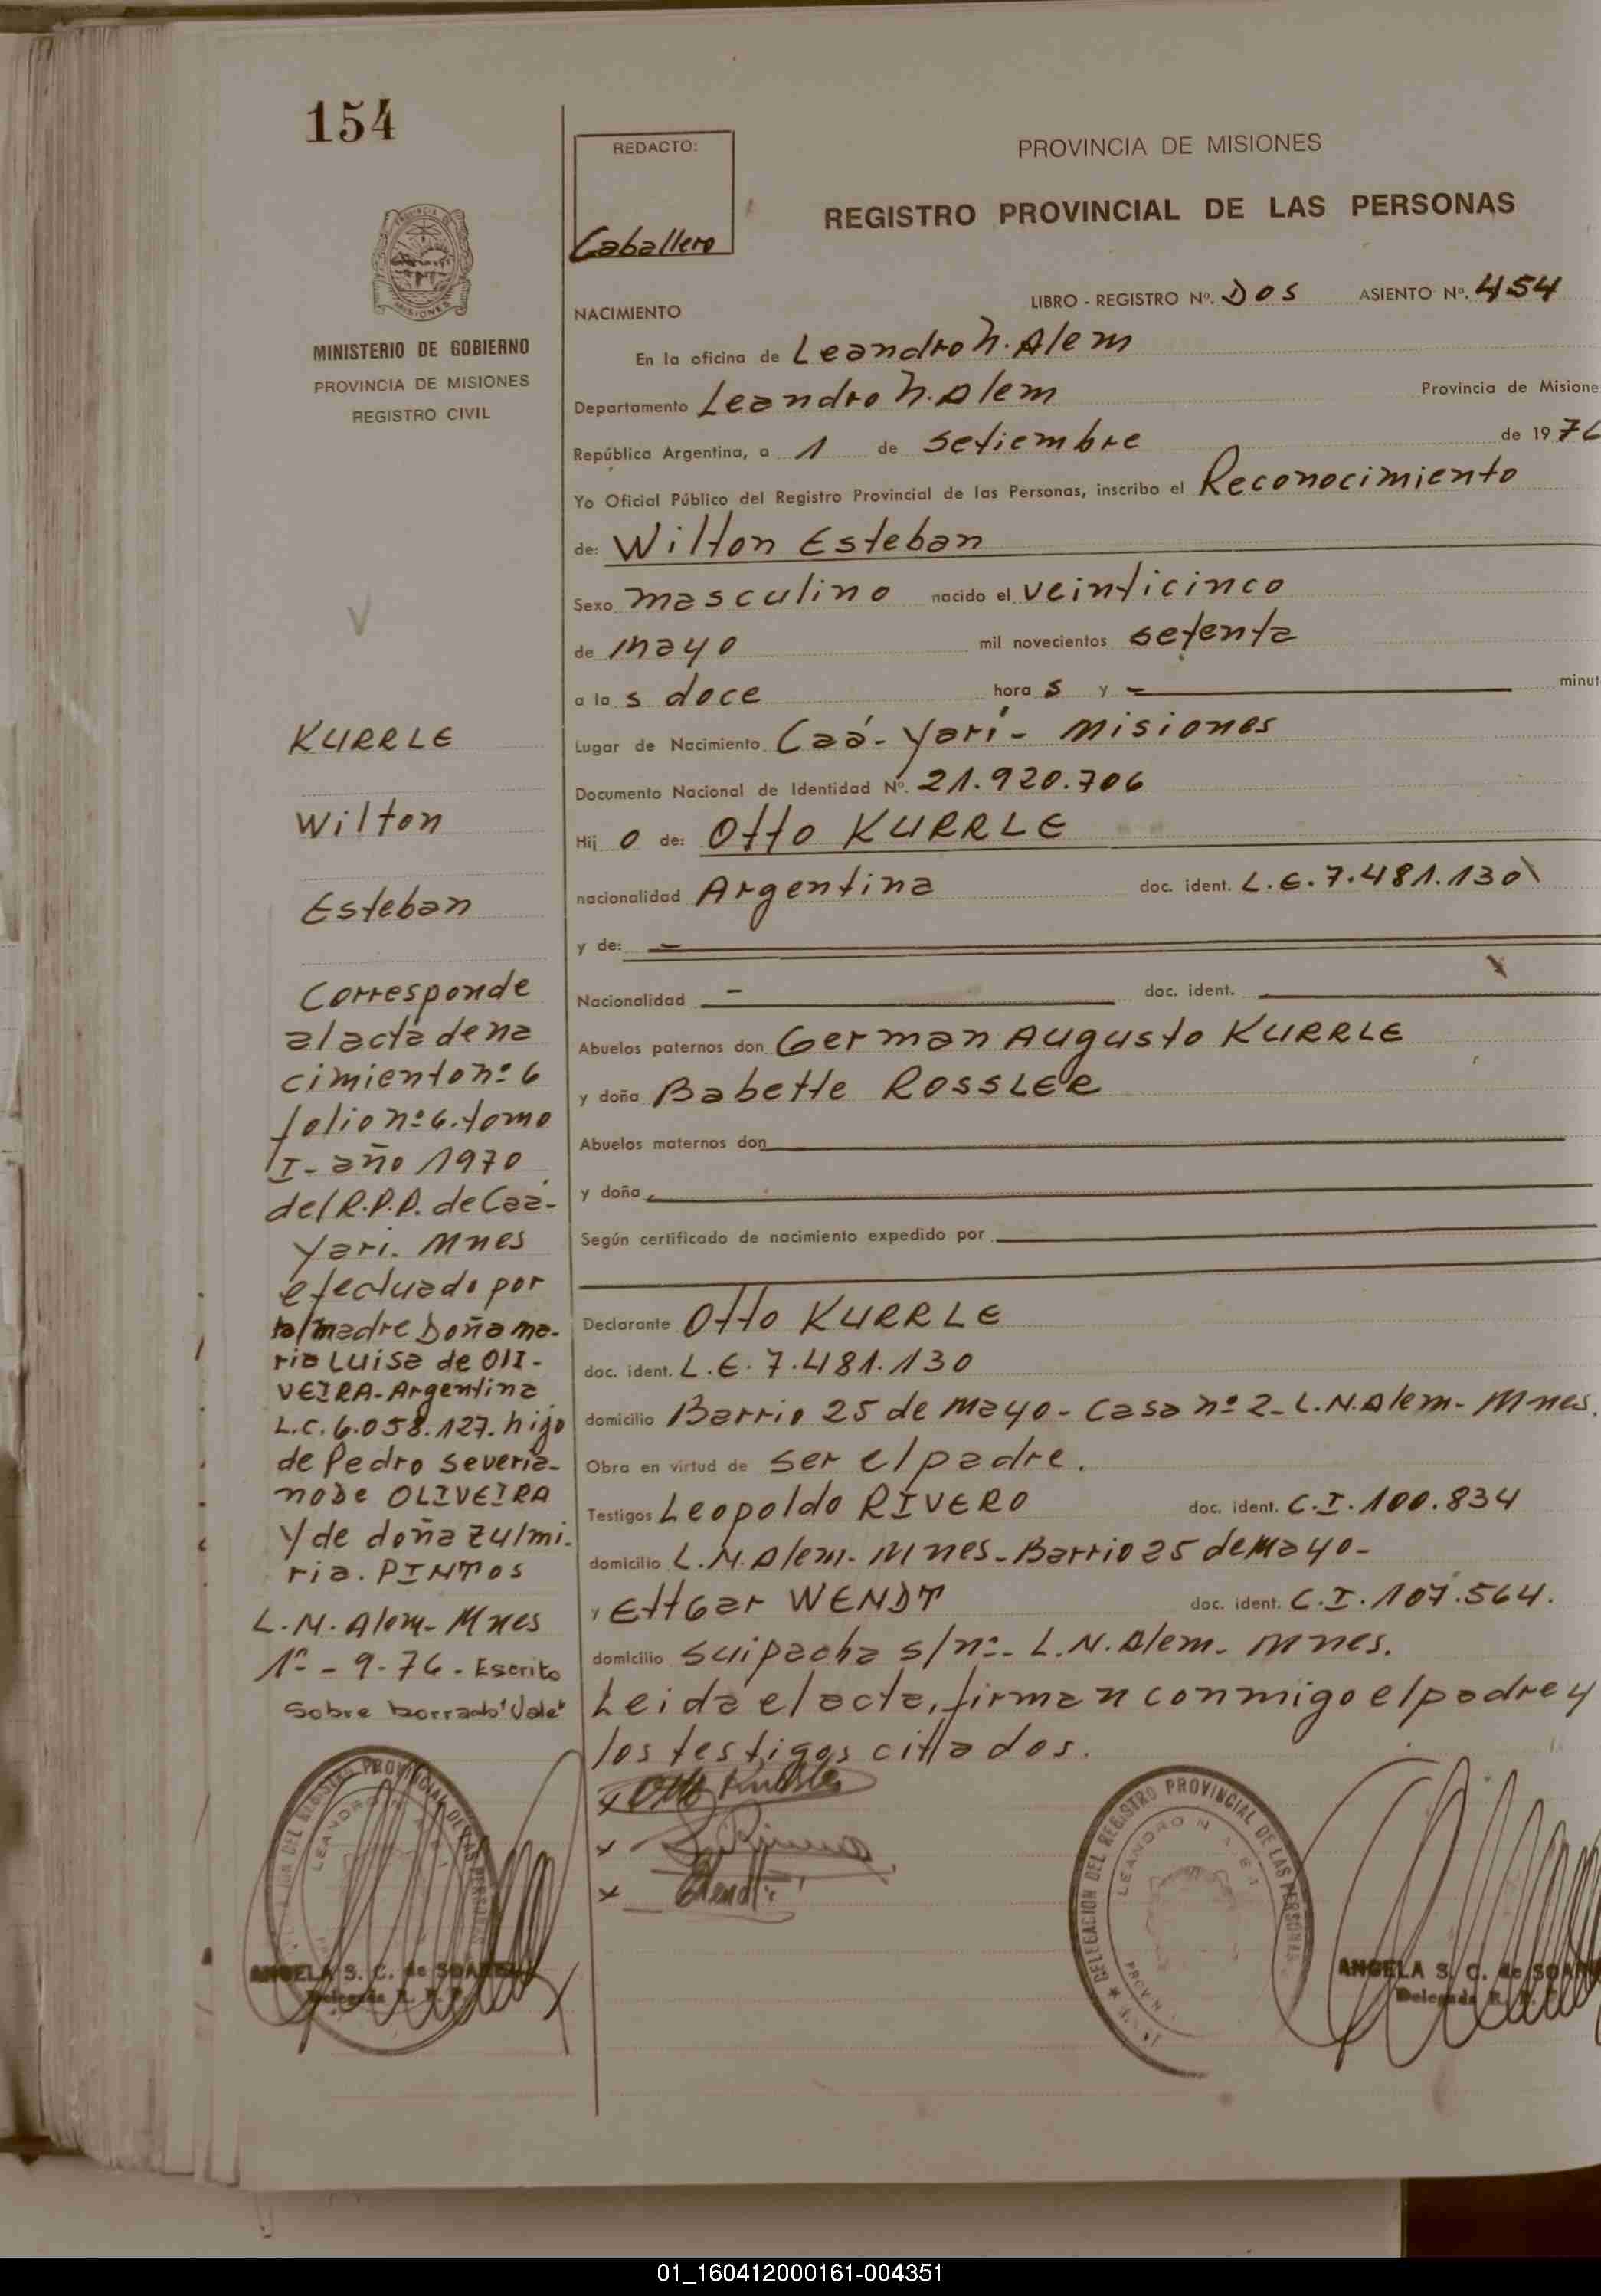 154
REDACTO:
Caballero
PROVINCIA DE MISIONES
REGISTRO PROVINCIAL DE LAS PERSONAS
MINISTERIO DE GOBIERNO
PROVINCIA DE MISIONES
REGISTRO CIVIL
NACIMIENTO
LIBRO - REGISTRO Nº. DOS ASIENTO Nº. 454
En la oficina de Leandro N. Alem
Departamento Leandro N. Alem Provincia de Misione
República Argentina, a 1 de setiembre de 1976
Yo Oficial Público del Registro Provincial de las Personas, inscribo el Reconocimiento
de: Wilton Esteban
Sexo masculino nacido el veinticinco
de mayo mil novecientos setenta
a la s doce hora s y — minut
Lugar de Nacimiento Caá-Yarí- Misiones
Documento Nacional de Identidad Nº. 21.920.706
Hij o de: Otto KURRLE
nacionalidad Argentina doc. ident. L.E. 7.481.130
y de: —
Nacionalidad — doc. ident.
Abuelos paternos don German Augusto KURRLE
y doña Babette ROSSLER
Abuelos maternos don
y doña
Según certificado de nacimiento expedido por
Declarante Otto KURRLE
doc. ident. L.E. 7.481.130
domicilio Barrio 25 de Mayo - Casa nº 2 - L.N.Alem - Mnes.
Obra en virtud de ser el padre.
Testigos Leopoldo RIVERO doc. ident. C.I. 100.834
domicilio L.N.Alem- Mnes- Barrio 25 de Mayo-
y EttGar WENDT doc. ident. C.I. 107.564.
domicilio Suipacha s/nº- L.N.Alem- Mnes.
Leida el acta, firman conmigo el padre y
los testigos citados.
x Otto Kurrle
x
x Wendt
KURRLE
Wilton
Esteban
Corresponde
al acta de na
cimiento nº 6
folio nº 6. tomo
I- año 1970
del R.P.P. de Caá-
Yari. Mnes
efectuado por
la madre Doña Ma-
ria Luisa de OlI-
VEIRA-Argentina
L.C. 6.058.127. hijo
de Pedro Severia-
no De OLIVEIRA
y de doña Zulmi-
ria. PINTOS
L.N. Alem- Mnes
1º - 9-76 - Escrito
sobre borrado "Vale"
DEL REGISTRO PROVINCIAL DE LAS PERSONAS
LEANDRO N.
ANGELA S. C. de SOAREZ
Delegada R. P. P.
DELEGACION DEL REGISTRO PROVINCIAL DE LAS PERSONAS
LEANDRO N. ALEM
ANGELA S. C. de SOAR
Delegada R. P.
01_160412000161-004351